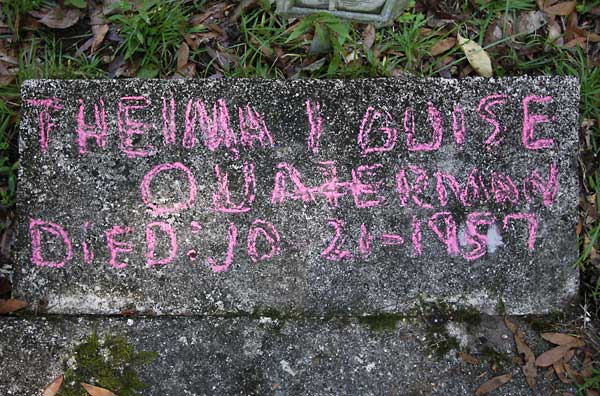 THElMA lOUISE
QUATERMAN
DIED: JO 21-1957